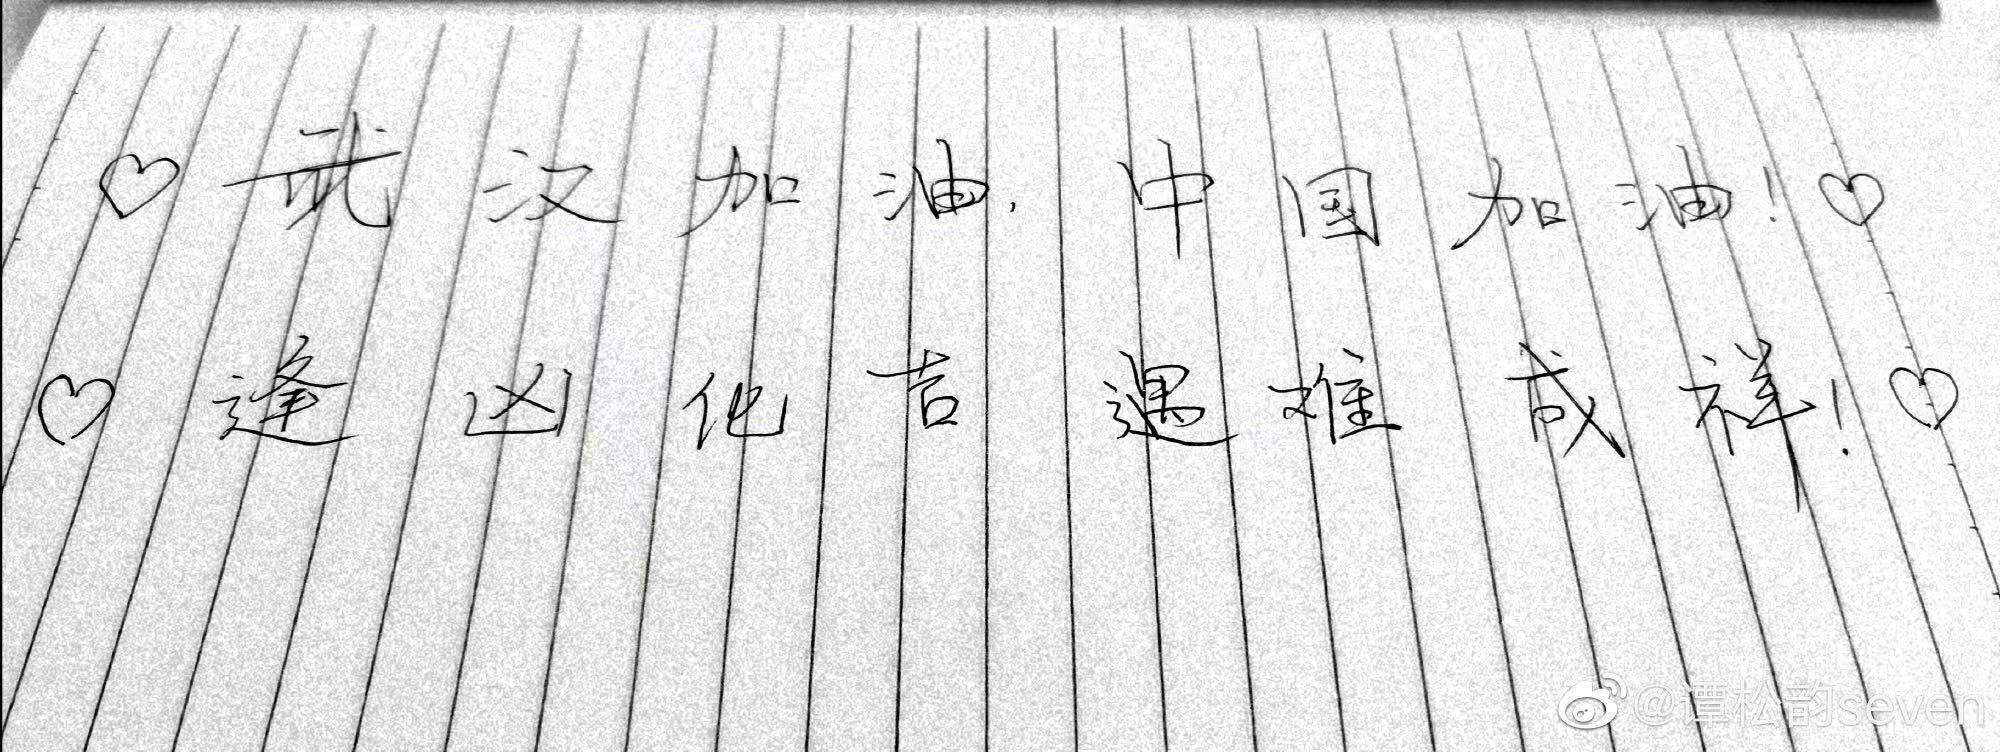 ♡ 武汉加油, 中国加油! ♡
♡ 逢凶化吉 遇难成祥! ♡
@谭松韵seven